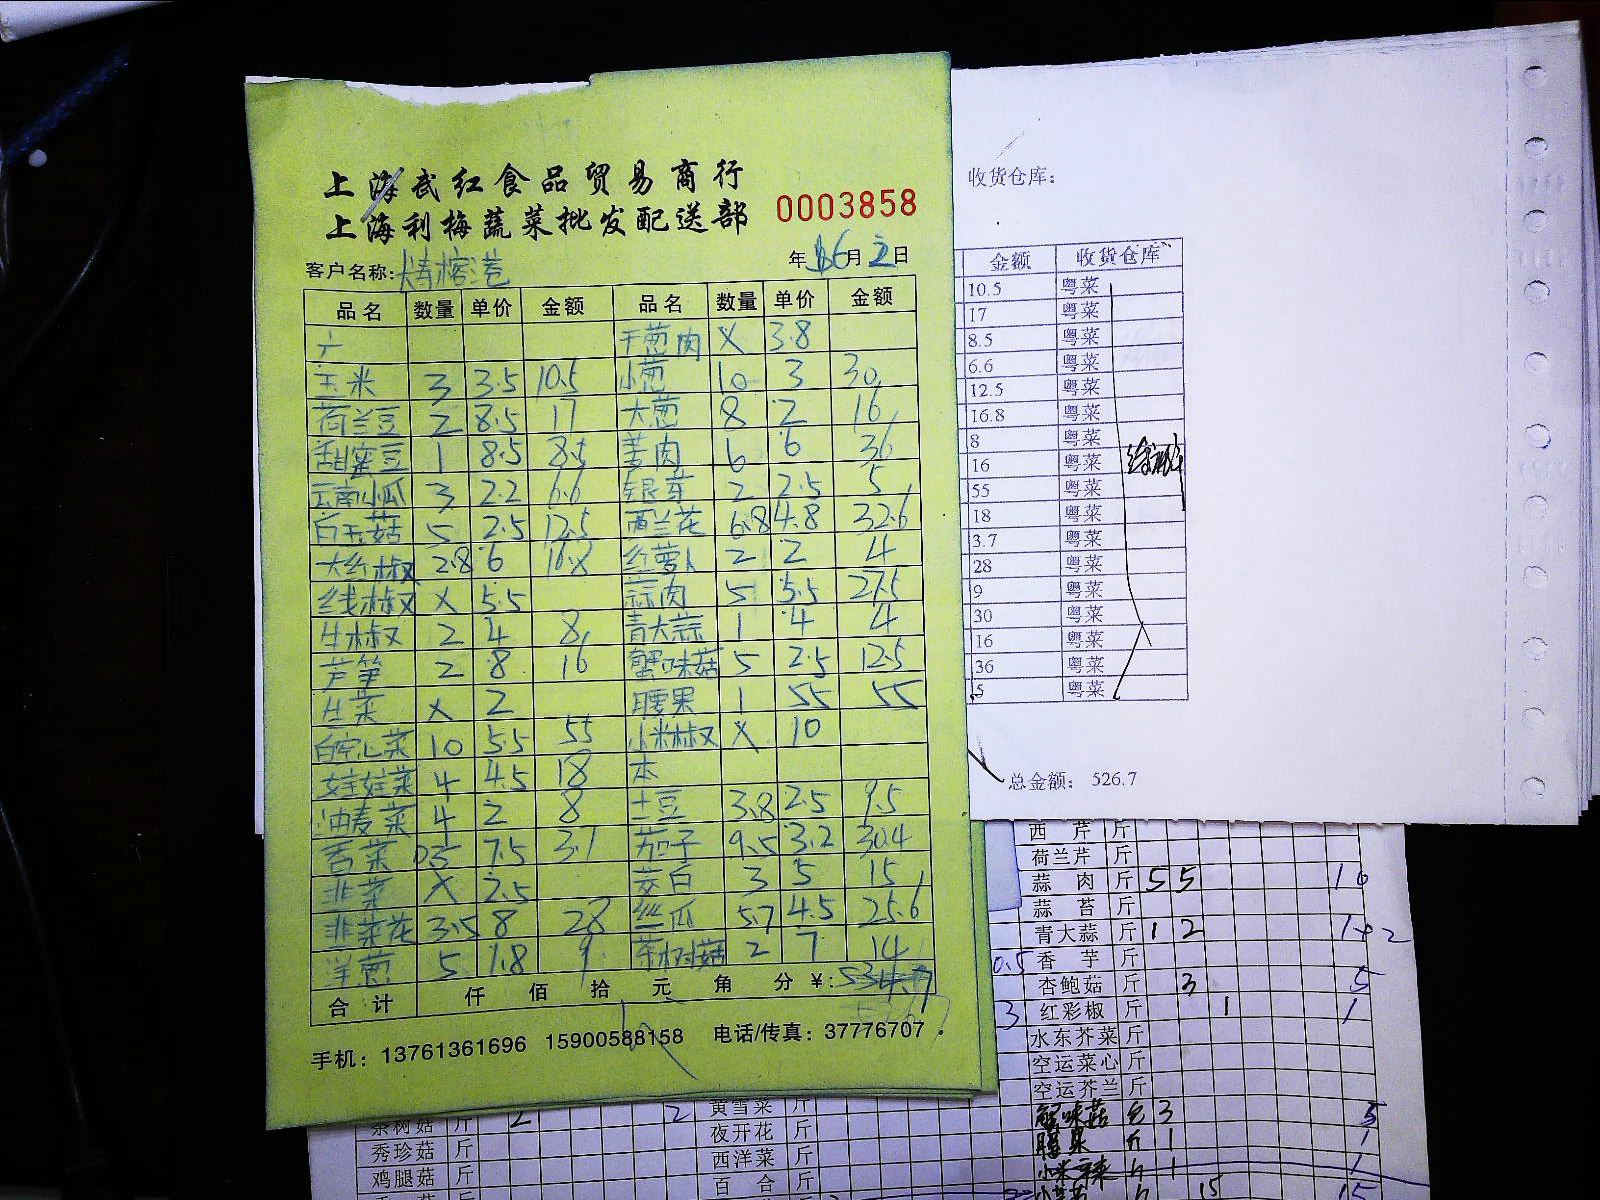 上海武红食品贸易商行
上海利梅蔬菜批发配送部
0003858
客户名称:
年 6月 2日
品名 数量 单价 金额 品名 数量 单价 金额
六 干葱肉 X 3.8
玉米 3 3.5 10.5 小葱 10 3 30
荷兰豆 2 8.5 17 大葱 8 2 16
甜蜜豆 1 8.5 8.5 姜肉 6 6 36
云南小瓜 3 2.2 6.6 银芽 2 2.5 5
白玉菇 5 2.5 12.5 西兰花 6.8 4.8 32.6
大红椒 2.8 6 16.8 红萝卜 2 2 4
线椒 X 5.5 蒜肉 5 5.5 27.5
牛椒 2 4 8 青大蒜 1 4 4
芦笋 2 8 16 蟹味菇 5 2.5 12.5
生菜 X 2 腰果 1 55 55
白空心菜 10 5.5 55 小米椒 X 10
娃娃菜 4 4.5 18 本
油麦菜 4 2 8 土豆 3.8 2.5 9.5
香菜 0.5 7.5 3.7 茄子 9.5 3.2 30.4
韭菜 X 2.5 茭白 3 5 15
韭菜花 3.5 8 28 丝瓜 5.7 4.5 25.6
洋葱 5 1.8 9 茶树菇 2 7 14
合计 仟 佰 拾 元 角 分 ¥:
手机：13761361696 15900588158 电话/传真：37776707
收货仓库：
金额 收货仓库
10.5 粤菜
17 粤菜
8.5 粤菜
6.6 粤菜
12.5 粤菜
16.8 粤菜
8 粤菜
16 粤菜
55 粤菜
18 粤菜
3.7 粤菜
28 粤菜
9 粤菜
30 粤菜
16 粤菜
36 粤菜
5 粤菜
总金额： 526.7
西芹 斤
荷兰芹 斤
蒜肉 斤 5 5 10
蒜苔 斤
青大蒜 斤 1 2 2
0.5 香芋 斤
杏鲍菇 斤 3 5
3 红彩椒 斤 1 1
水东芥菜 斤
空运菜心 斤
空运芥兰 斤
茶树菇 斤 2 2 黄雪菜 斤 蟹味菇 包 3 5
秀珍菇 斤 夜开花 斤 腰果 斤 1 1
鸡腿菇 斤 西洋菜 斤 小米辣 斤 1 1
百合 斤 15 15